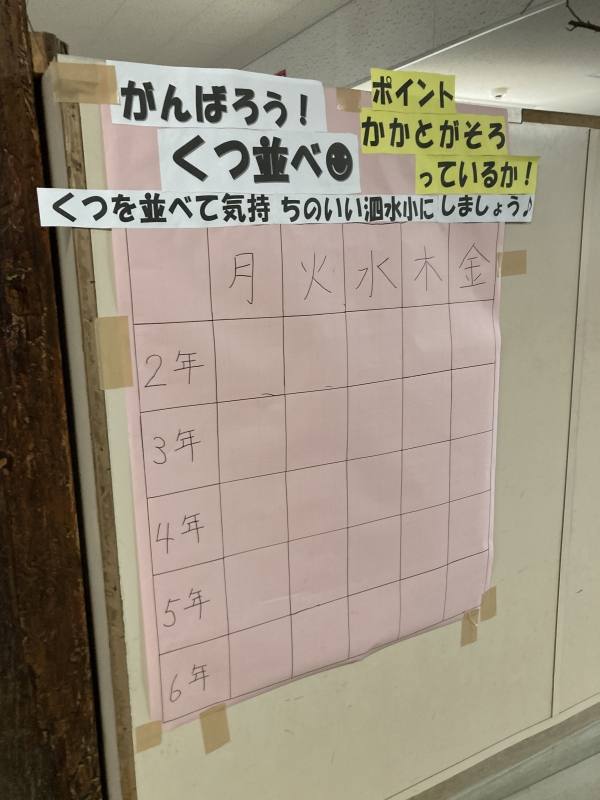 がんばろう！
くつ並べ☻
ポイント
かかとがそろ
っているか！
くつを並べて気持 ちのいい泗水小に しましょう♪
月 火 水 木 金
2年
3年
4年
5年
6年